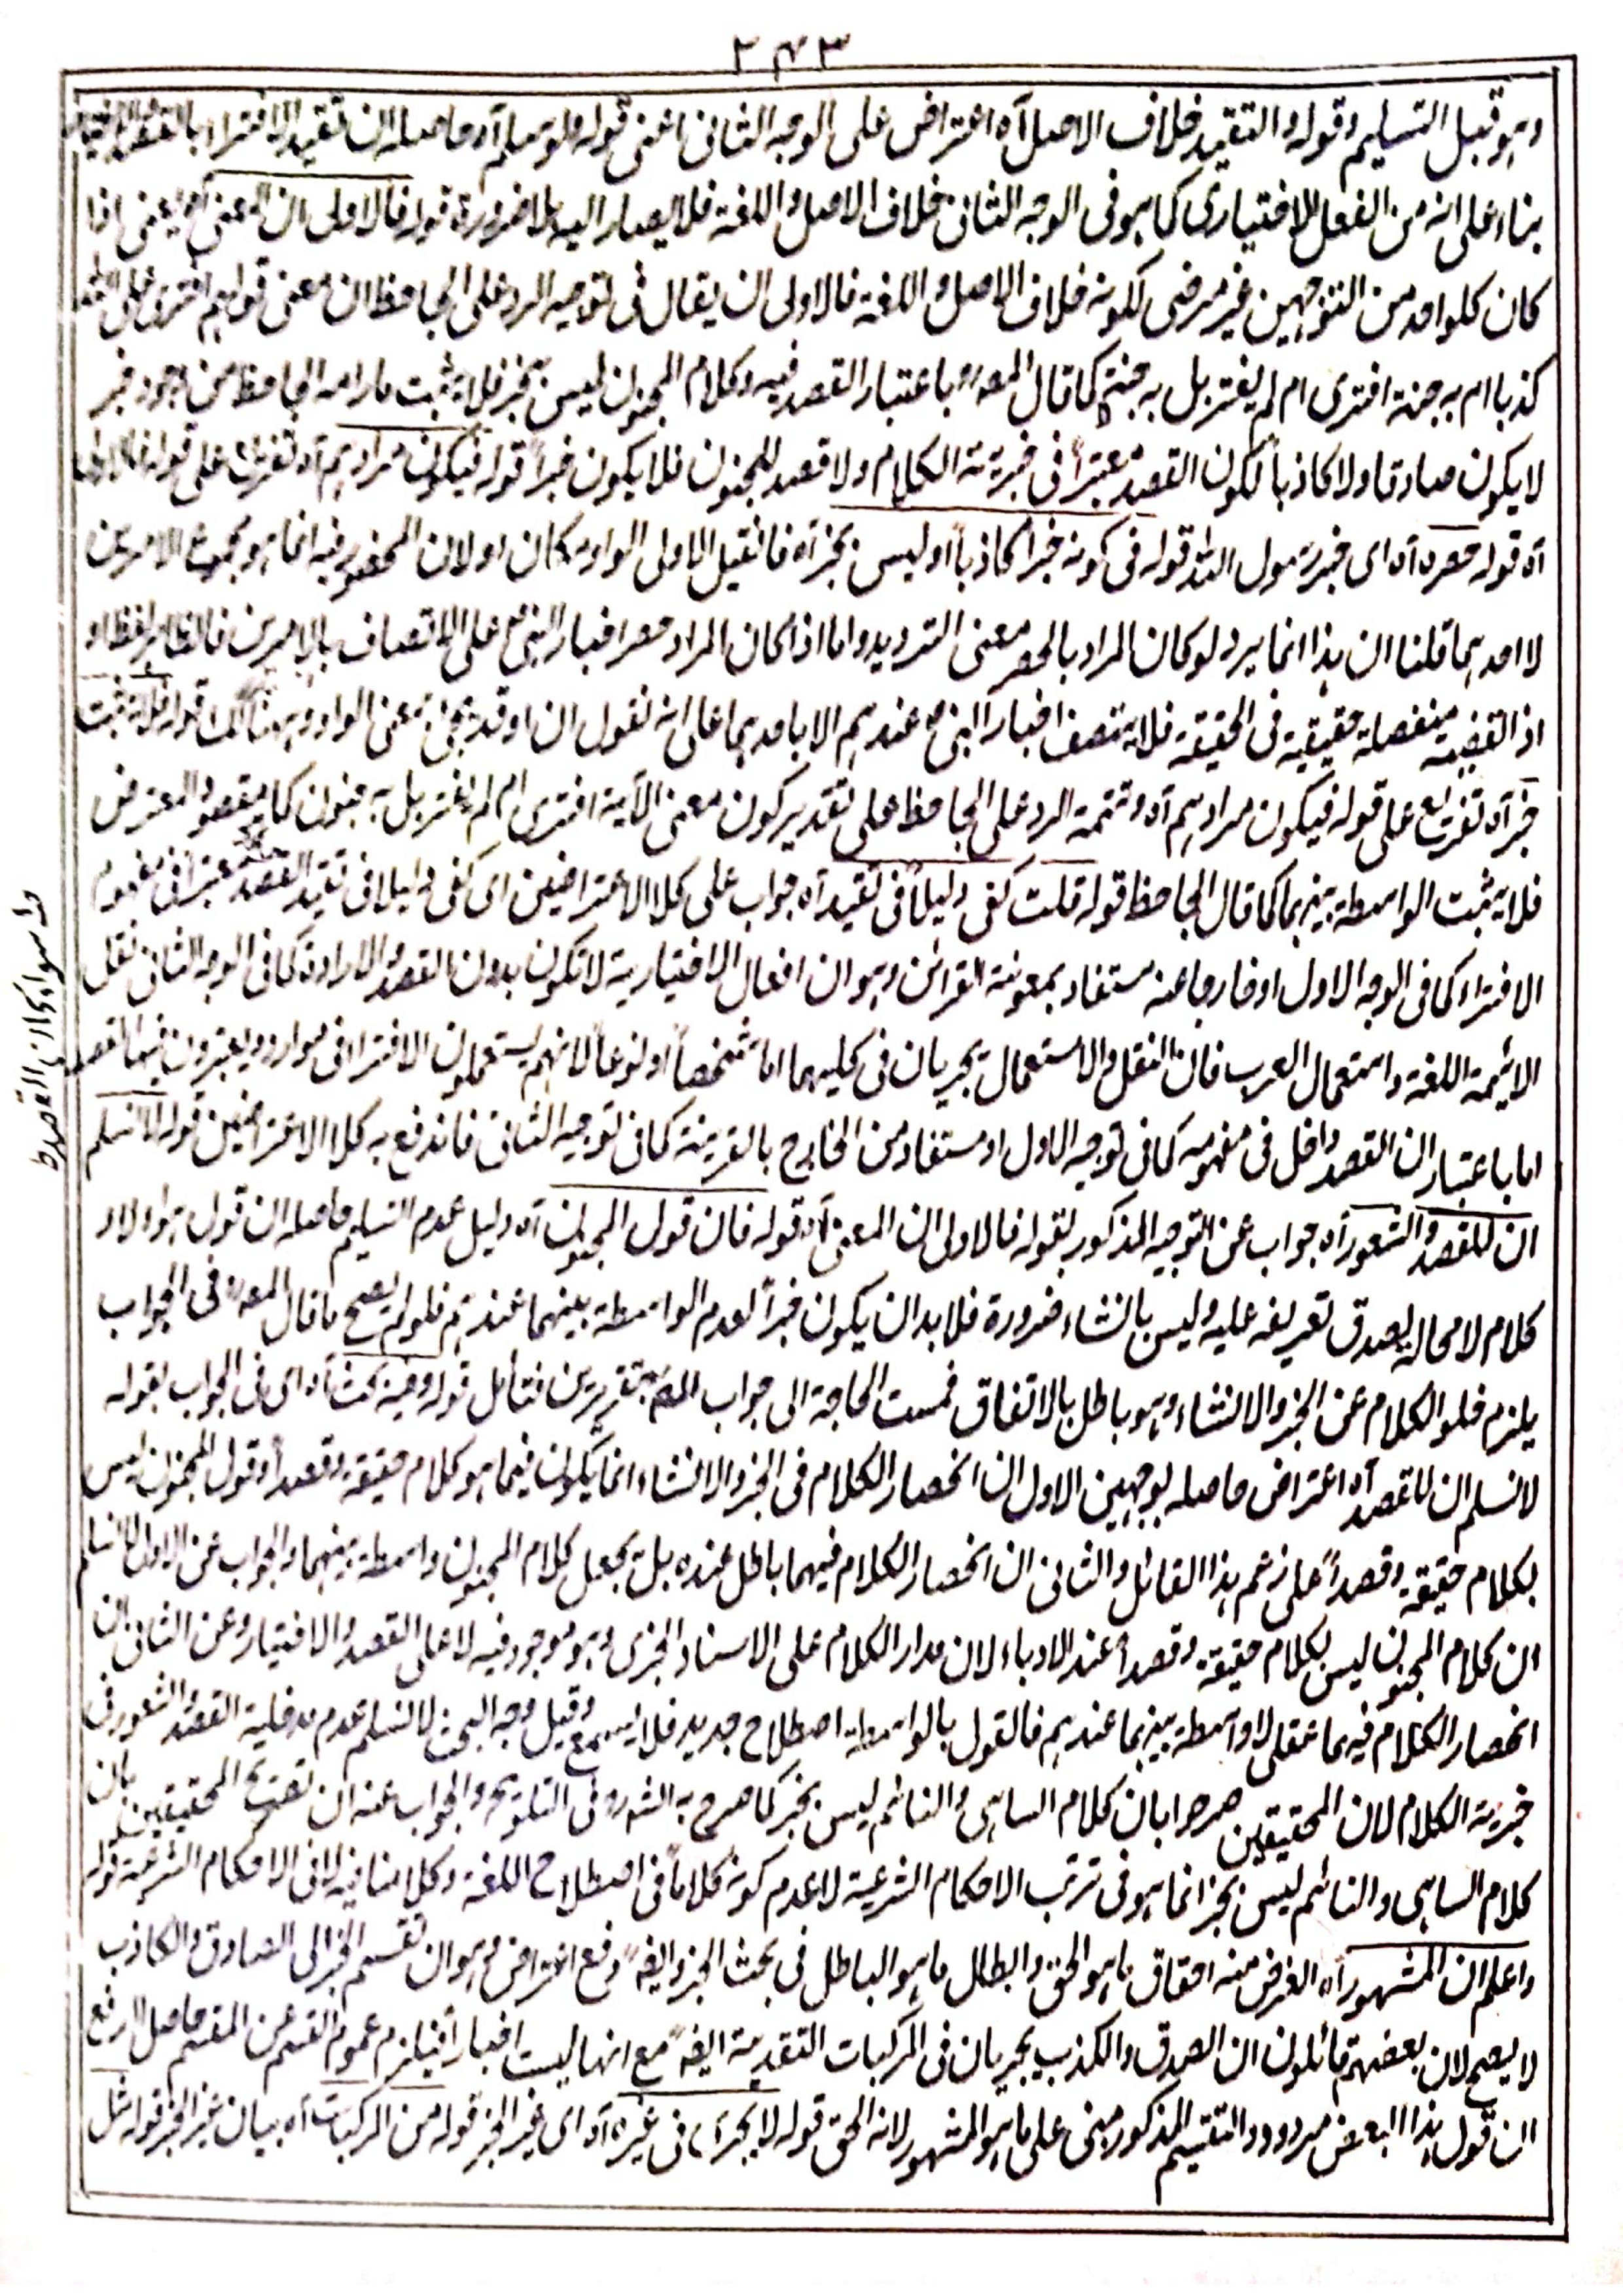 ٢٤٣
وهو قبيل التسليم وقوله والتقييد خلاف الاصل آه اعتراض على الوجه الثانى اعنى قوله ولو سلم آه وحاصله ان تقييد الافتراء بالقصد
بناء على انه من الفعل الاختيارى كما هو فى الوجه الثانى خلاف الاصل واللغة فلا يصار اليه بلا ضرورة قوله فالاولى ان المعنى آه يعنى اذا
كان كلواحد من التوجيهين غير مرضى لكونه خلاف الاصل واللغة فالاولى ان يقال فى توجيه الرد على الجاحظ ان معنى قولهم افترى على الله
كذبا ام به جنة افترى ام لم يفتر بل به جنة كما قال المصر وباعتبار القصد فيه وكلام المجنون ليس بخبر فلا يثبت مارامه الجاحظ من وجود خبر
لا يكون صادقا ولا كاذبا لكون القصد معتبرا فى خبرية الكلام ولا قصد للمجنون فلا يكون خبرا قوله فيكون مرادهم آه تفريع على قوله فالاولى
آه قوله حصره آه اى خبر رسول الله قوله فى كونه خبرا كاذبا أو ليس بخبر آه فانقيل الاولى الواو مكان او لان المحصور فيه انما هو مجموع الامرين
لا احدهما قلنا ان هذا انما يرد لو كان المراد بالحصر معنى الترديد واما اذا كان المراد حصر اخبار النبى على الاتصاف بالامرين فالظاهر لفظ او
اذ القضية منفصلة حقيقية فى الحقيقة فلا يتصف اخبار النبى عندهم الا باحدهما على انه نقول ان او قد يجئ بمعنى الواو وههنا كذلك قوله فلا يثبت
خبر آه تفريع على قوله فيكون مرادهم آه وتتمة الرد على الجاحظ على تقدير كون معنى الآية افترى ام لم يفتر بل به جنون كما مقصود المعترض
فلا يثبت الواسطة بينهما كما قال الجاحظ قوله قلت كفى دليلا فى تقييد آه جواب على كلا الاعتراضين اى كفى دليلا فى تقييد القصد معتبرا فى مفهوم
الافتراء كما فى الوجه الاول او خارجا عنه مستفاد بمعونة القرائن وهو ان افعال الاختيارية لا تكون بدون القصد والارادة كما فى الوجه الثانى نقل
الائمة اللغة واستعمال العرب فان النقل والاستعمال يجريان فى كليهما اما شخصا أو نوعا لانهم يستعملون الافترا فى موارد ويعتبرون فيها القصد
اما باعتبار ان القصد داخل فى مفهومه كما فى توجيه الاول او مستفاد من الخارج بالقرينة كما فى توجيه الثانى فاندفع به كلا الاعتراضين قوله لا نسلم
ان للقصد والشعور آه جواب عن التوجيه المذكور بقوله فالاولى ان المعنى آه قوله فان قول المجنون آه دليل عدم التسليم حاصله ان قول هؤلاء
كلام لا محالة يصدق تعريفه عليه وليس بانشاء ضرورة فلا بد ان يكون خبرا لعدم الواسطة بينهما عندهم فلو لم يصح ما قال المصر فى الجواب
يلزم خلو الكلام عن الخبر والانشاء وهو باطل بالاتفاق فمست الحاجة الى جواب المصر بتقريرين فتأمل قوله وفيه بحث آه اى فى الجواب بقوله
لا نسلم ان للقصد آه اعتراض حاصله بوجهين الاول ان انحصار الكلام فى الخبر والانشاء انما يكون فيما هو كلام حقيقة وقصدا وقول المجنون ليس
بكلام حقيقة وقصدا على زعم هذا القائل والثانى ان انحصار الكلام فيهما باطل عنده بل يجعل كلام المجنون واسطة بينهما والجواب عن الاول لا نسلم
ان كلام المجنون ليس بكلام حقيقة وقصدا عند الادباء لان مدار الكلام على الاسناد الخبرى وهو موجود فيه لا على القصد والاختيار وعن الثانى ان
انحصار الكلام فيهما عقلى لا واسطة بينهما عندهم فالقول بالواسطة اصطلاح جديد فلا يسمع وقيل وجه البحث لا نسلم عدم مدخلية القصد والشعور فى
خبرية الكلام لان المحققين صرحوا بان كلام الساهى والنائم ليس بخبر كما صرح به الشر فى التلويح والجواب عنه ان تصريح المحققين بان
كلام الساهى والنائم ليس بخبر انما هو فى ترتب الاحكام الشرعية لا عدم كونه كلاما فى اصطلاح اللغة وكلامنا فيه لا فى الاحكام الشرعية قوله
واعلم ان المشهور آه الغرض منه احقاق ما هو الحق وابطال ما هو الباطل فى بحث الخبر وايضا دفع اعتراض وهو ان تقسيم الخبر الى الصادق والكاذب
لا يصح لان بعضهم قائلون ان الصدق والكذب يجريان فى المركبات التقديية ايضا مع انها ليست اخبارا فيلزم عموم القسم عن المقسم حاصل الدفع
ان قول هذا البعض مردود والتقسيم المذكور مبنى على ما هو المشهور لانه الحق قوله لا يجرى فى غيره آه اى غير الخبر قوله من المركبات آه بيان غير الخبر قوله مثل
سواء كان القصد